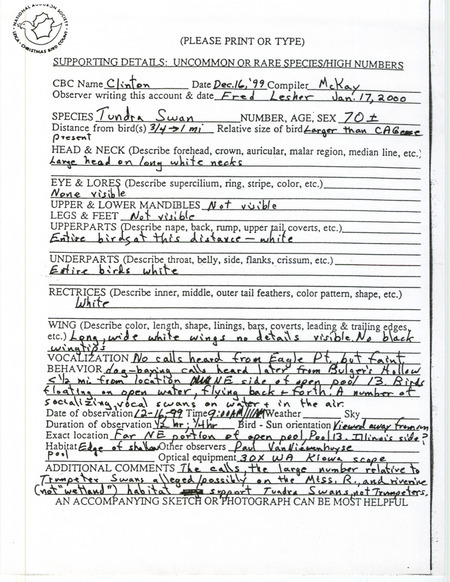 NATIONAL AUDUBON SOCIETY
CHRISTMAS BIRD COUNT
(PLEASE PRINT OR TYPE)
SUPPORTING DETAILS: UNCOMMON OR RARE SPECIES/HIGH NUMBERS
CBC Name Clinton Date Dec.16,'99 Compiler McKay
Observer writing this account & date Fred Lesher Jan. 17, 2000
SPECIES Tundra Swan NUMBER, AGE, SEX 70±
Distance from bird(s) 3/4→1 mi Relative size of bird Larger than CAGeese
present
HEAD & NECK (Describe forehead, crown, auricular, malar region, median line, etc.)
Large head on long white necks
EYE & LORES (Describe supercilium, ring, stripe, color, etc.)
None visible
UPPER & LOWER MANDIBLES Not visible
LEGS & FEET Not visible
UPPERPARTS (Describe nape, back, rump, upper tail coverts, etc.)
Entire birds at this distance - white
UNDERPARTS (Describe throat, belly, side, flanks, crissum, etc.)
Entire birds white
RECTRICES (Describe inner, middle, outer tail feathers, color pattern, shape, etc.)
White
WING (Describe color, length, shape, linings, bars, coverts, leading & trailing edges,
etc.) Long, wide white wings no details visible. No black
wingtips
VOCALIZATION No calls heard from Eagle Pt, but faint
BEHAVIOR dog-baying calls heard later from Bulger's Hollow
≤1/2 mi. from location NE side of open pool 13. Birds
floating on open water, flying back & forth. A number of
socializing, vocal swans on water & in the air
Date of observation 12-16-99 Time 9:00AM/11AM Weather Sky
Duration of observation 1/2 hr; 1/4 hr Bird - Sun orientation Viewed away from sun
Exact location Far NE portion of open pool, Pool 13. Illinois side?
Habitat Edge of shallow Other observers Paul VanNieuwenhuyse
pool Optical equipment 30X WA Kiowa scope
ADDITIONAL COMMENTS The calls, the large number relative to
Trumpeter Swans alleged/possibly on the Miss. R., and riverine
(not "wetland") habitat support Tundra Swans, not Trumpeters.
AN ACCOMPANYING SKETCH OR PHOTOGRAPH CAN BE MOST HELPFUL